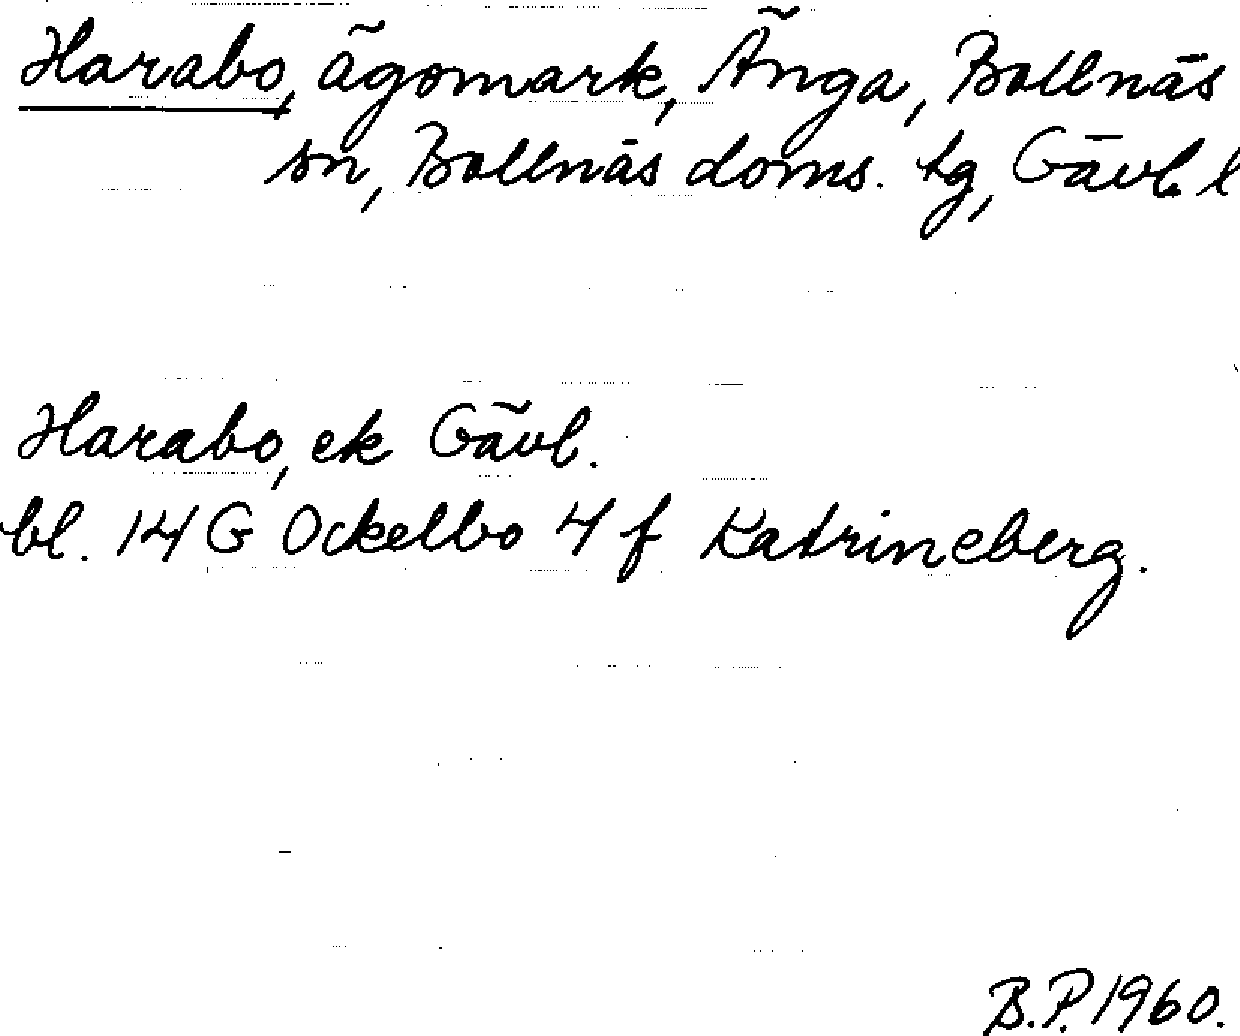 Harabo, ägomark, Änga, Bollnäs
sn, Bollnäs doms. tg, Gävl. l
Harabo, ek Gävl.
bl. 14 G Ockelbo 4 f Katrineberg.
B.P. 1960.